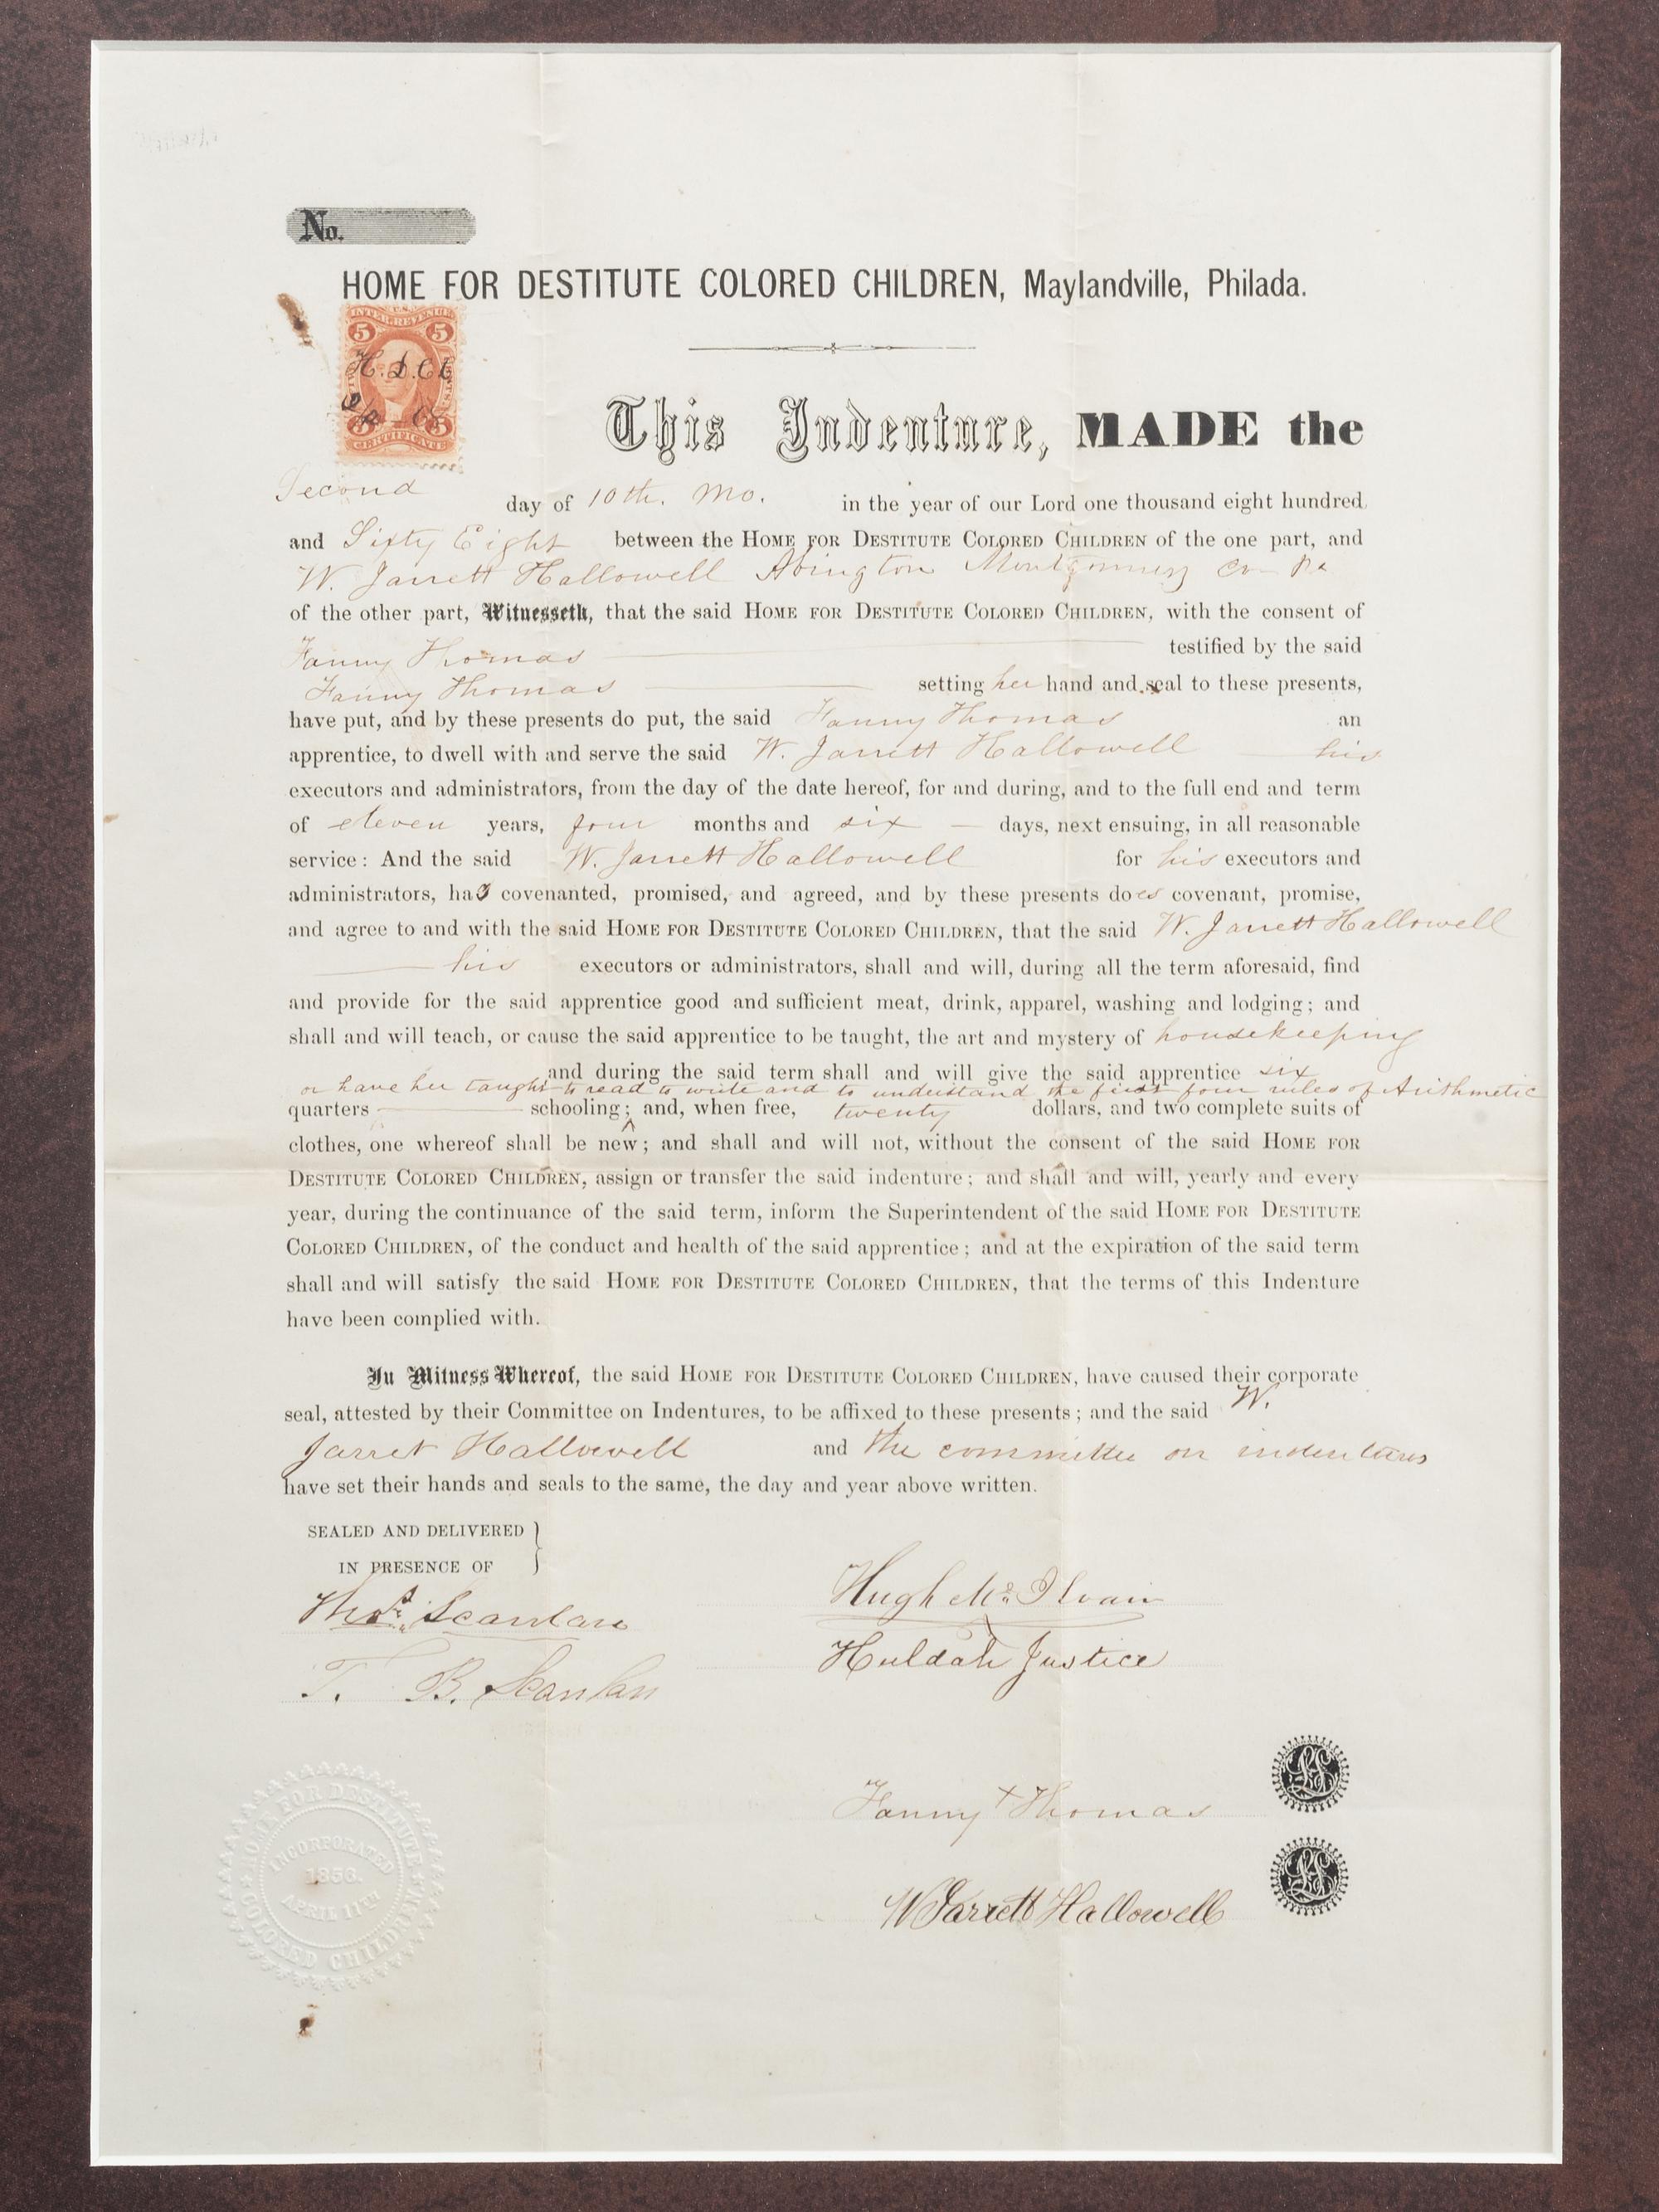 No.
HOME FOR DESTITUTE COLORED CHILDREN, Maylandville, Philada.
U.S.
INTER. REVENUE
5 5
H.D.CC
5 5
CERTIFICATE
This Indenture, MADE the
Second day of 10th. Mo. in the year of our Lord one thousand eight hundred
and Sixty Eight between the HOME FOR DESTITUTE COLORED CHILDREN of the one part, and
W. Jarrett Hallowell Abington Montgomery Co Pa
of the other part, Witnesseth, that the said HOME FOR DESTITUTE COLORED CHILDREN, with the consent of
Fanny Thomas testified by the said
Fanny Thomas setting her hand and seal to these presents,
have put, and by these presents do put, the said Fanny Thomas an
apprentice, to dwell with and serve the said W. Jarrett Hallowell his
executors and administrators, from the day of the date hereof, for and during, and to the full end and term
of eleven years, four months and six days, next ensuing, in all reasonable
service: And the said W. Jarrett Hallowell for his executors and
administrators, has covenanted, promised, and agreed, and by these presents does covenant, promise,
and agree to and with the said HOME FOR DESTITUTE COLORED CHILDREN, that the said W. Jarrett Hallowell
his executors or administrators, shall and will, during all the term aforesaid, find
and provide for the said apprentice good and sufficient meat, drink, apparel, washing and lodging; and
shall and will teach, or cause the said apprentice to be taught, the art and mystery of housekeeping
and during the said term shall and will give the said apprentice six
or have her taught to read to write and to understand the first four rules of Arithmetic
quarters schooling; and, when free, twenty dollars, and two complete suits of
clothes, one whereof shall be new; and shall and will not, without the consent of the said HOME FOR
DESTITUTE COLORED CHILDREN, assign or transfer the said indenture; and shall and will, yearly and every
year, during the continuance of the said term, inform the Superintendent of the said HOME FOR DESTITUTE
COLORED CHILDREN, of the conduct and health of the said apprentice; and at the expiration of the said term
shall and will satisfy the said HOME FOR DESTITUTE COLORED CHILDREN, that the terms of this Indenture
have been complied with.
In Witness Whereof, the said HOME FOR DESTITUTE COLORED CHILDREN, have caused their corporate
seal, attested by their Committee on Indentures, to be affixed to these presents; and the said W.
Jarret Hallowell and the committee on indentures
have set their hands and seals to the same, the day and year above written.
SEALED AND DELIVERED
IN PRESENCE OF
Thos. Scanlan
T. B. Scanlan
Hugh McIlvain
Huldah Justice
Fanny + Thomas
LS
W Jarrett Hallowell
LS
HOME FOR DESTITUTE COLORED CHILDREN
INCORPORATED
1856.
APRIL 17TH